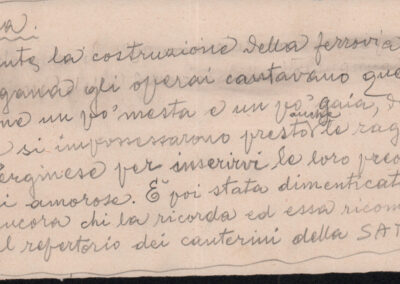 a.
nte, la costruzione della ferrovia
gana gli operai cantavano que
ne un po' mesta e un po' gaia, d
si impossessarono presto anche le rag
erginese per inserirvi le loro preo
i amorose. È poi stata dimenticat
ancora chi la ricorda ed essa ricom
l repertorio dei canterini della SAT